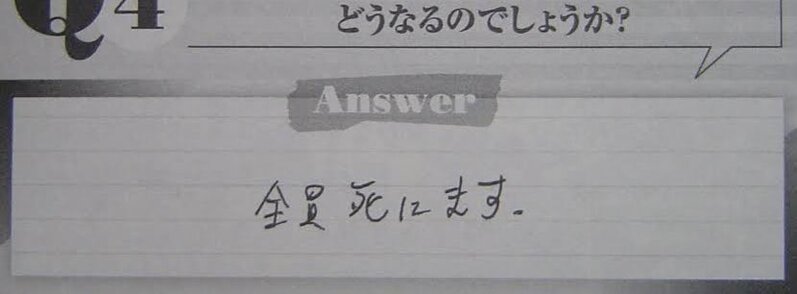 Q4
どうなるのでしょうか?
Answer
全員死にます.